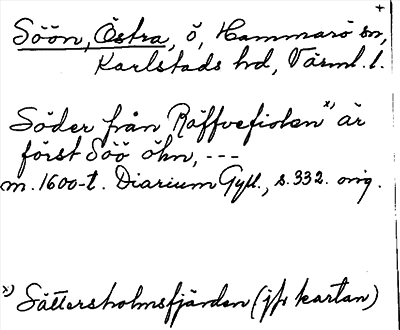 +
Söön, Östra, ö, Hammarö sn,
Karlstads hd, Värml. l.
Söder från Räffvefiolen x) är
först Söö öhn, ---
m. 1600-t. Diarium Gyll., s. 332. orig.
x) Sättersholmsfjärden (jfr kartan)